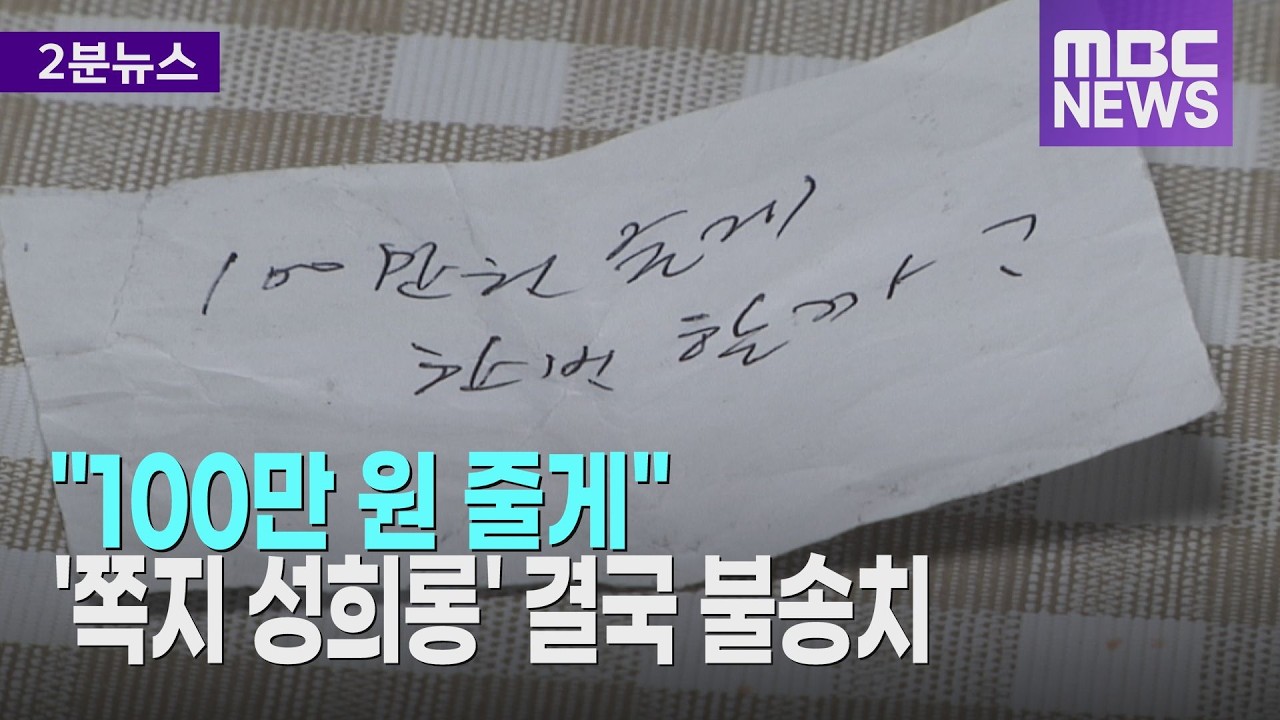 2분뉴스
MBC
NEWS
100만원 줄게
한번 할까 고
"100만 원 줄게"
'쪽지 성희롱' 결국 불송치